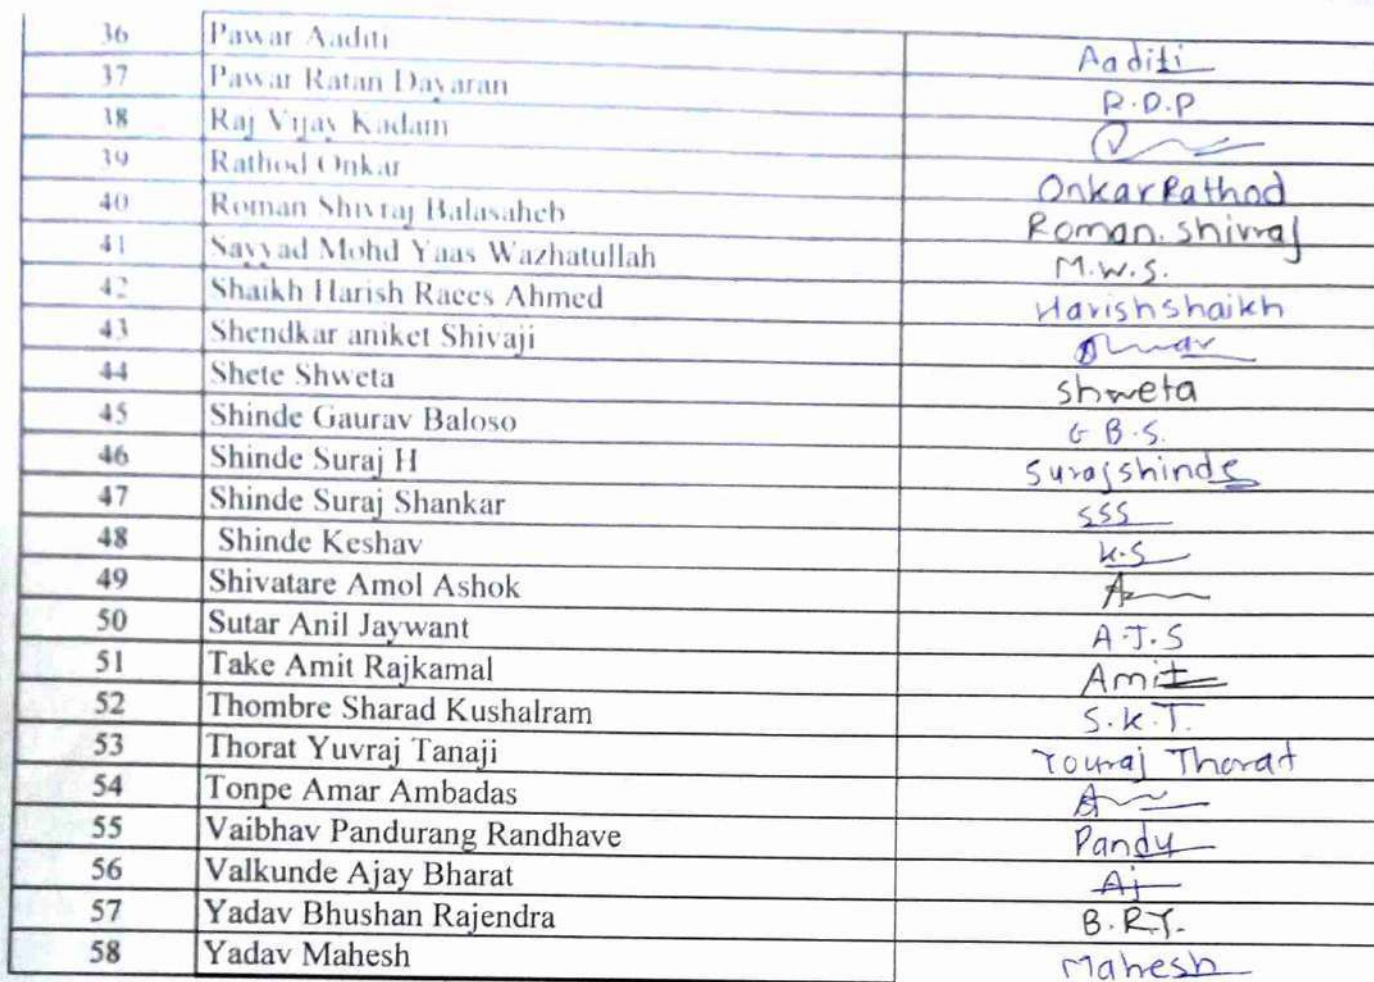 36 Pawar Aaditi Aaditi
37 Pawar Ratan Dayaran R.D.P
38 Raj Vijay Kadam
39 Rathod Onkar Onkar Rathod
40 Roman Shivraj Balasaheb Roman. shivraj
41 Sayyad Mohd Yaas Wazhatullah M.W.S.
42 Shaikh Harish Raees Ahmed Harish shaikh
43 Shendkar aniket Shivaji
44 Shete Shweta shweta
45 Shinde Gaurav Baloso G B.S.
46 Shinde Suraj H Suraj shinde
47 Shinde Suraj Shankar SSS
48 Shinde Keshav K.S
49 Shivatare Amol Ashok
50 Sutar Anil Jaywant A.J.S
51 Take Amit Rajkamal Amit
52 Thombre Sharad Kushalram S.K.T.
53 Thorat Yuvraj Tanaji Thorat
54 Tonpe Amar Ambadas
55 Vaibhav Pandurang Randhave Pandu
56 Valkunde Ajay Bharat Aj
57 Yadav Bhushan Rajendra B.R.Y.
58 Yadav Mahesh Mahesh